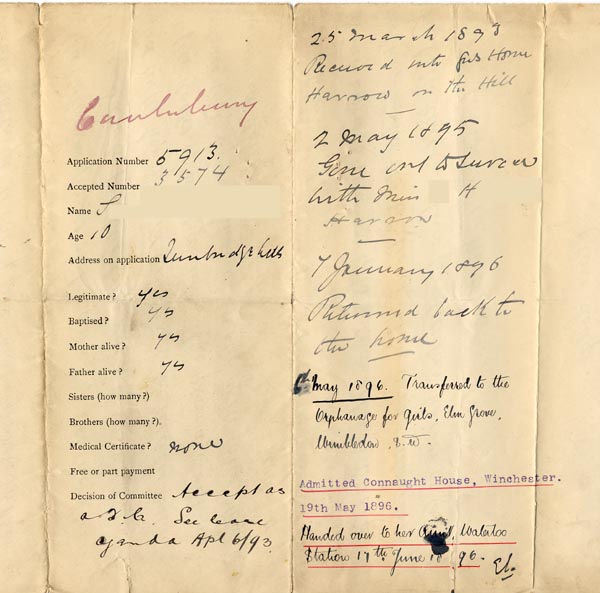 Canterbury
Application Number 5913.
Accepted Number 3574
Name S
Age 10
Address on application Tunbridge Wells
Legitimate? yes
Baptised? yes
Mother alive? yes
Father alive? yes
Sisters (how many?)
Brothers (how many?).
Medical Certificate? none
Free or part payment
Decision of Committee Accept as
a See
agenda Apl 6/93.
25 March 1893
Received into Girls Home
Harrow on the Hill
2 May 1895
Gone out to Service
with Miss H
Harrow
7 January 1896
Returned back to
the home
May 1896. Transferred to the
Orphanage for girls, Elm Grove,
Wimbledon, S.W.
Admitted Connaught House, Winchester.
19th May 1896.
Handed over to her Aunt, Waterloo
Station 17th June 1896.